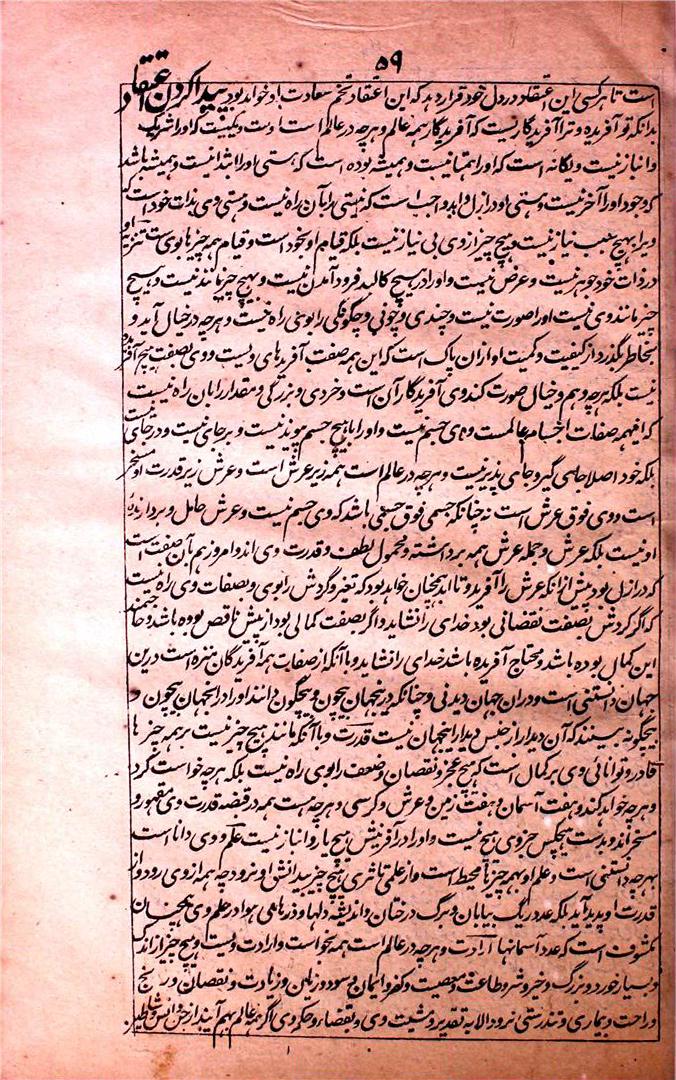 ۵۹
است تا هر کسی این اعتقاد در دل خود قرار دهد که این اعتقاد تخم سعادت او خواهد بود پیدا کردن اعتقاد
بدانکه تو آفریده و ترا آفریدگاریست که آفریدگار همه عالم و هر چه در عالم است اوست و یکیست که او را شریک
و انباز نیست و یگانه است که او را همتا نیست و همیشه بوده است که هستی او را ابتدا نیست و همیشه باشد
که وجود او را آخر نیست و هستی او در ازل و ابد واجب است که نیستی را بآن راه نیست و هستی وی بذات خود است که
ویرا بهیچ سبب نیاز نیست و هیچ چیز از وی بی نیاز نیست بلکه قیام او بخود است و قیام همه چیز ها بوی است تنزیه او
در ذات خود جوهر نیست و عرض نیست و او را در هیچ کالبد فرود آمدن نیست و بهیچ چیز مانند نیست و هیچ
چیز مانند وی نیست او را صورت نیست و چندی و چونی و چگونگی را بوی راه نیست و هر چه در خیال آید و
بخاطر بگذرد از کیفیت و کمیت او از ان پاک است که این همه صفت آفریدهای ویست و وی بصفت هیچ آفریده
نیست بلکه هر چه وهم و خیال صورت کند وی آفریدگار آن است و خردی و بزرگی و مقدار را بان راه نیست
که اینهمه صفات اجسام عالمست و وی جسم نیست و او را با هیچ جسم پیوند نیست و بر جای نیست و در جای نیست
بلکه خود اصلا جای گیر و جای پذیر نیست و هر چه در عالم است همه زیر عرش است و عرش زیر قدرت او مسخر
است و وی فوق عرش است نه چنانکه جسمی فوق جسمی باشد که وی جسم نیست و عرش حامل و بردارنده
او نیست بلکه عرش و حمله عرش همه برداشته و محمول لطف و قدرت وی اند و امروز هم بآن صفت است
که در ازل بود پیش از انکه عرش را آفرید و تا ابد همچنان خواهد بود که تغیر و گردش را بوی و بصفات وی راه نیست
که اگر گردش بصفت نقصانی بود خدای را نشاید و اگر بصفت کمالی بود از پیش ناقص بوده باشد و حاجتمند
این کمال بوده باشد و محتاج آفریده باشد خدای را نشاید و با آنکه از صفات همه آفریدگان منزه است درین
جهان دانستنی است و دران جهان دیدنی و چنانکه درینجهان بیچون و بیچگون دانند او را درانجهان بیچون و
بیچگونه بینند که آن دیدار از جنس دیدار اینجهان نیست قدرت و با آنکه مانند هیچ چیز نیست بر همه چیز ها
قادر و توانائی وی بر کمال است که هیچ عجز و نقصان و ضعف را بوی راه نیست بلکه هر چه خواست کرد
و هر چه خواهد کند و هفت آسمان و هفت زمین و عرش و کرسی و هر چه هست همه در قبضه قدرت وی مقهور و
مسخر اند و بدست هیچکس جز وی هیچ نیست و او را در آفرینش هیچ یار و انباز نیست علم و وی دانا است
بهر چه دانستنی است و علم او بهمه چیز ها محیط است و از علی تا ثری هیچ چیز بی دانش او نرود چه همه از وی رود و از
قدرت او پدید آید بلکه عدد ریگ بیابان و برگ درختان و اندیشه دلها و ذرهای هوا در علم وی همچنان
مکشوف است که عدد آسمانها ارادت و هر چه در عالم است همه بخواست و ارادت ویست و هیچ چیز از اندک
و بسیار خورد و بزرگ و خیر و شر و طاعت و معصیت و کفر و ایمان و سود و زیان و زیادت و نقصان و رنج
و راحت و بیماری و تندرستی نرود الا به تقدیر و مشیت وی و بقضا و حکم وی اگر همه عالم بهم آیند از جن و انس و شیاطین